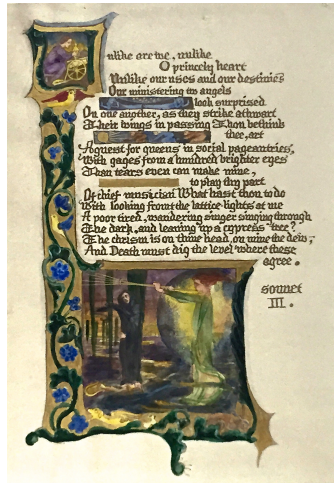 nlike are we, unlike
O princely heart
Unlike our uses and our destinies
Our ministering two angels
look surprised
On one another, as they strike athwart
Their wings in passing Thou bethink
thee, art
A guest for queens in social pageantries,
With gages from a hundred brighter eyes
Than tears even can make mine,
to play thy part
Of chief musician What hast thou to do
With looking from the lattice-lights at me
A poor tired, wandering singer singing through
The dark, and leaning up a cypress tree?
The chrism is on thine head, on mine the dew,
And Death must dig the level where these
agree.
sonnet
III.